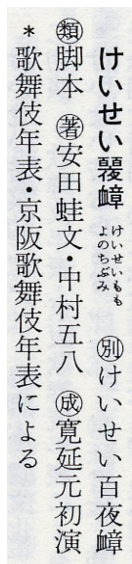 けいせい幛 けいせいももよのちぶみ ㊙別けいせい百夜幛
類脚本 著安田蛙文・中村五八 成寛延元初演
*歌舞伎年表・京阪歌舞伎年表による